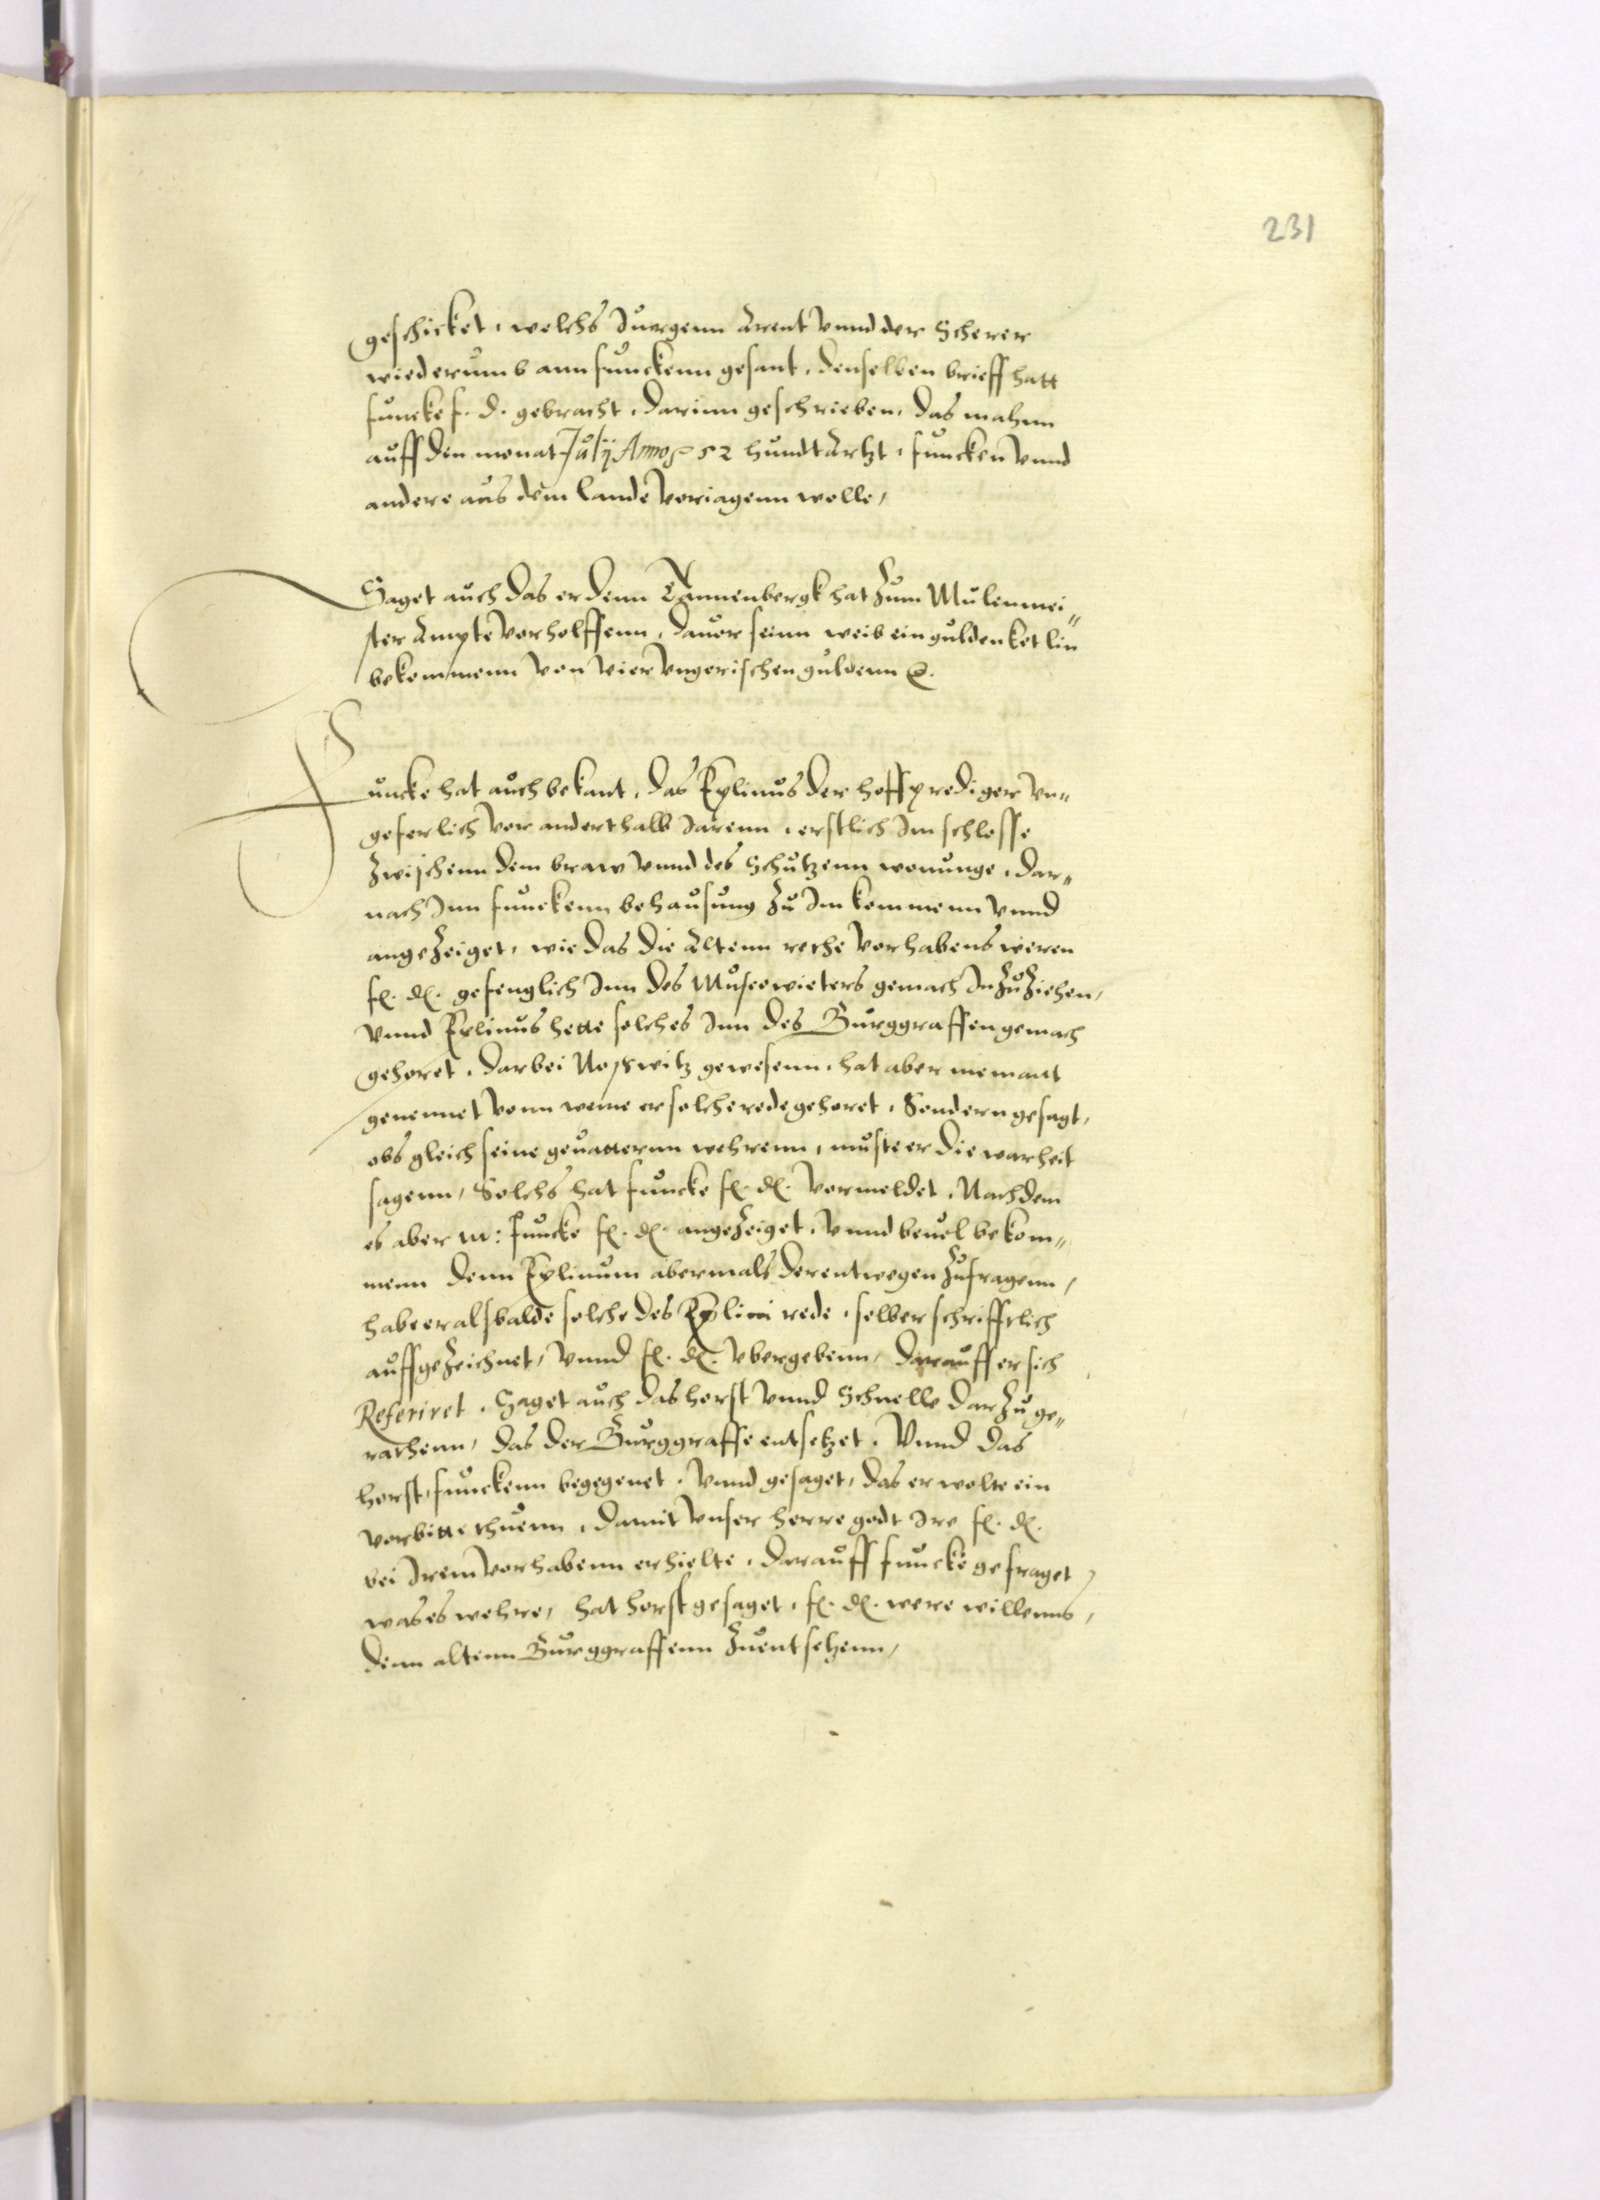 231
geschicket, welchs Juergenn Arent vnnd der Scherer
wiederumb ann Funckenn gesant, denselben brieff hatt
Funcke f. d. gebracht, darinn geschrieben, das mahnn
auff den monat Julij Anno 52 hundt Artzt, Funcken vnnd
andere aus dem lande voriagenn wolle,
Saget auch das er denn Tannenbergk hat zum Mulenmei"
ster Ampte vorholffenn, dauor seinn weib ein gulden ketlin
bekommenn von vier vngerischen guldenn
Funcke hat auch bekant, das Eylinus der hoffprediger vn"
geferlich vor anderthalb Jarenn, erstlich Im schlosse
zwischenn dem braw vnnd des Schutzenn wonunge, dar"
nach Inn Funckenn behausung zu Im kommenn vnnd
angezeiget, wie das die Altenn rethe vorhabens weren
fl. dl. gefenglich Inn des gemach Inzuziehen,
vnnd Eylinus hette solches Inn des Burggraffen gemach
gehoret, darbei gewesenn, hat aber niemant
genennet vonn weme er solche rede gehoret, Sondern gesagt,
obs gleich seine geuatternn wehrenn, muste er die warheit
sagenn, Solchs hat Funcke fl. dl. vormeldet, Nachdem
es aber M: Funcke fl. dl. angezeiget, vnnd beuel bekom"
menn denn Eylinum abermals derentwegen zufragenn,
habe er alsbalde solche des Eylini rede, selber schrifftlich
auffgezeichnet, vnnd fl. dl. vbergebenn, darauff er sich
Referiret. Saget auch das Horst vnnd Schnelle darzu ge"
rathenn, das der Burggraffe entsetzet, Vnnd das
Horst, Funckenn begegenet, vnnd gesaget, das er wolte ein
vorbitte thuenn, damit vnser herre godt Ire fl. dl.
bei Irem vorhabenn erhielte, darauff Funcke gefraget
was es wehre, hat Horst gesaget, fl. dl. were willenns,
denn altenn Burggraffenn zuentsetzenn,